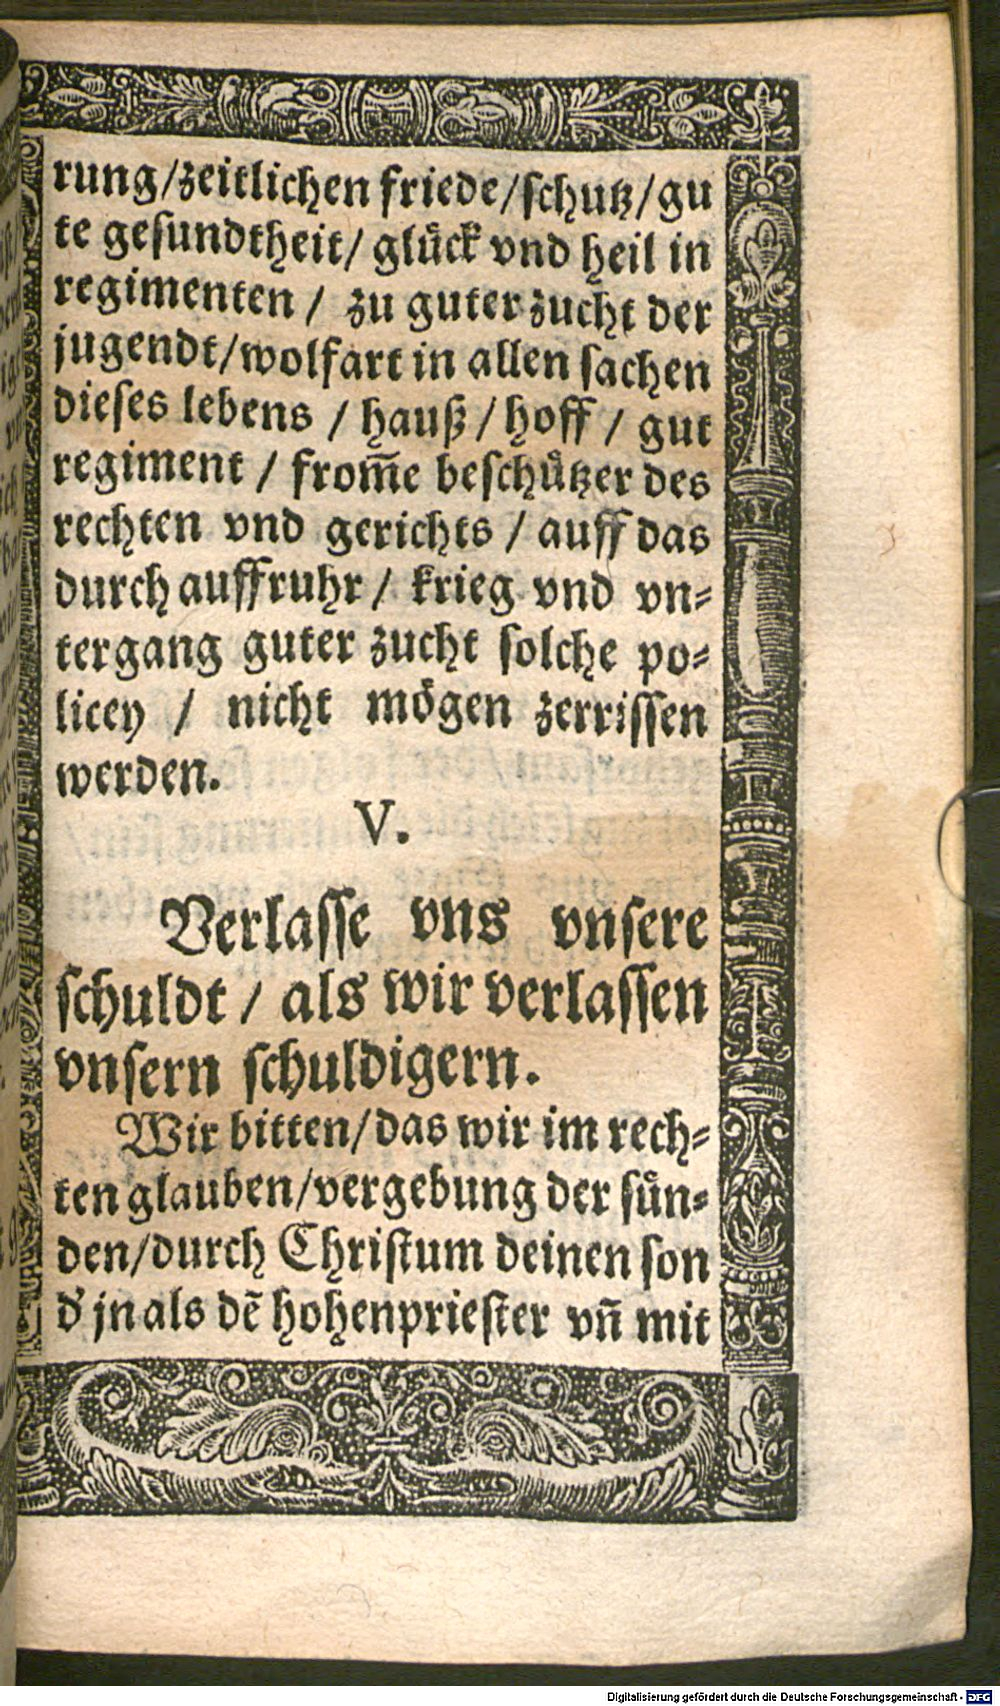 rung/zeitlichen friede/schutz/gu
te gesundtheit/ glůck vnd heil in
regimenten / zu guter zucht der
jugendt/wolfart in allen sachen
dieses lebens / hauß / hoff / gut
regiment / from̄e beschůtzer des
rechten vnd gerichts / auff das
durch auffruhr / krieg vnd vn⸗
tergang guter zucht solche po⸗
licey / nicht mögen zerrissen
werden.
V.
Verlasse vns vnsere
schuldt / als wir verlassen
vnsern schuldigern.
Wir bitten/das wir im rech⸗
ten glauben/vergebung der sůn⸗
den/durch Christum deinen son
d' jn als dē hohenpriester vn̄ mit
Digitalisierung gefördert durch die Deutsche Forschungsgemeinschaft - DFG